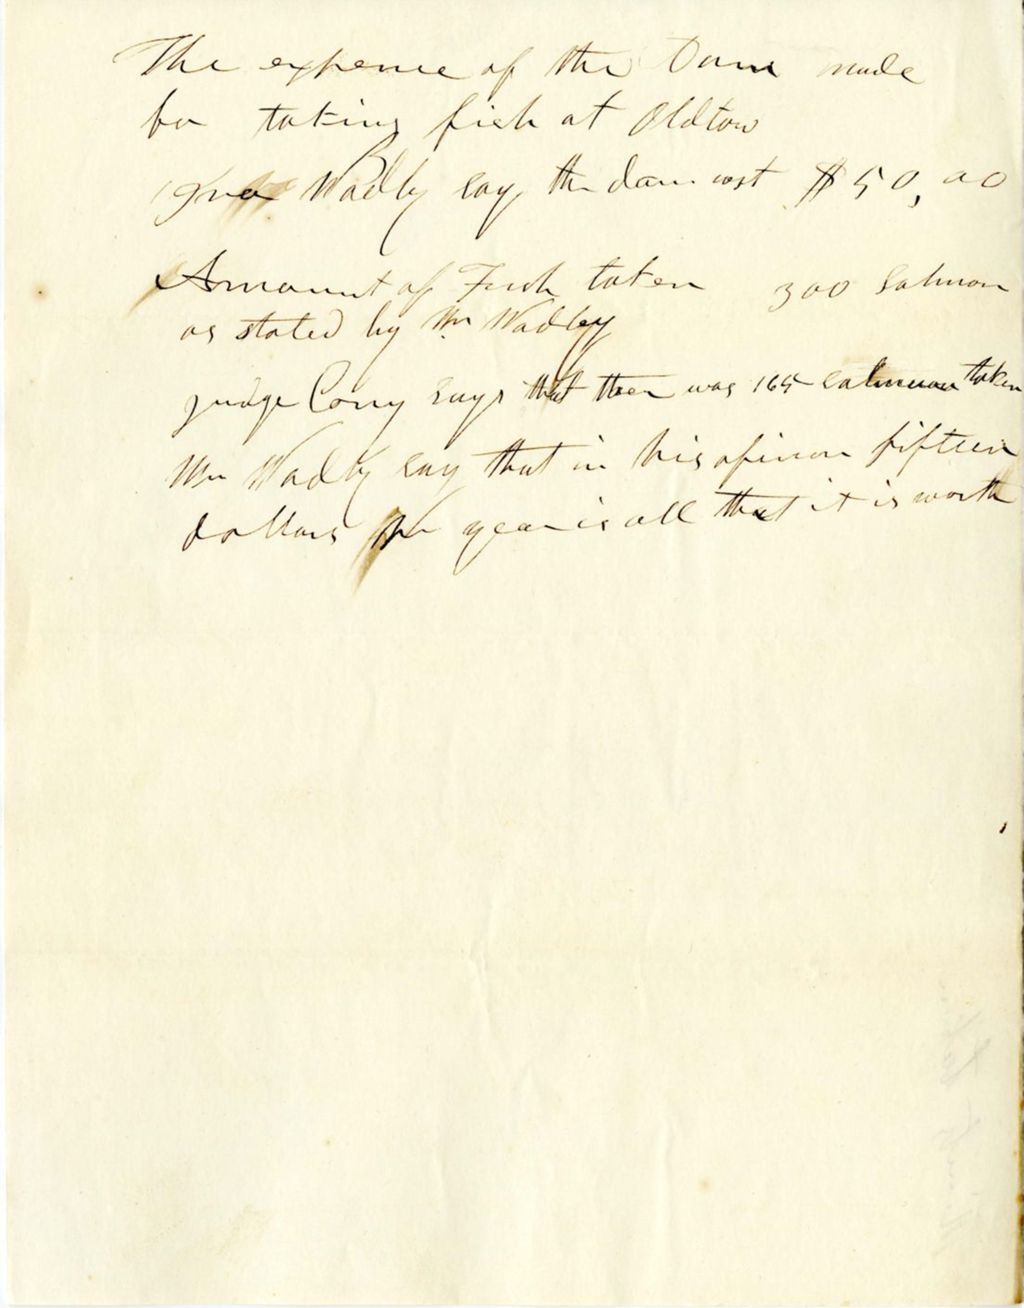 The expence of the Dam made
for taking fish at Oldtow
Ira Wadly say the dam cost $50,00
Amount of Fish taken 300 Salmon
as stated by Mr Wadley
judge Cony says that theer was 165 salmon taken
Mr Wadly say that in his opinion fifteen
dollars per year is all that it is worth